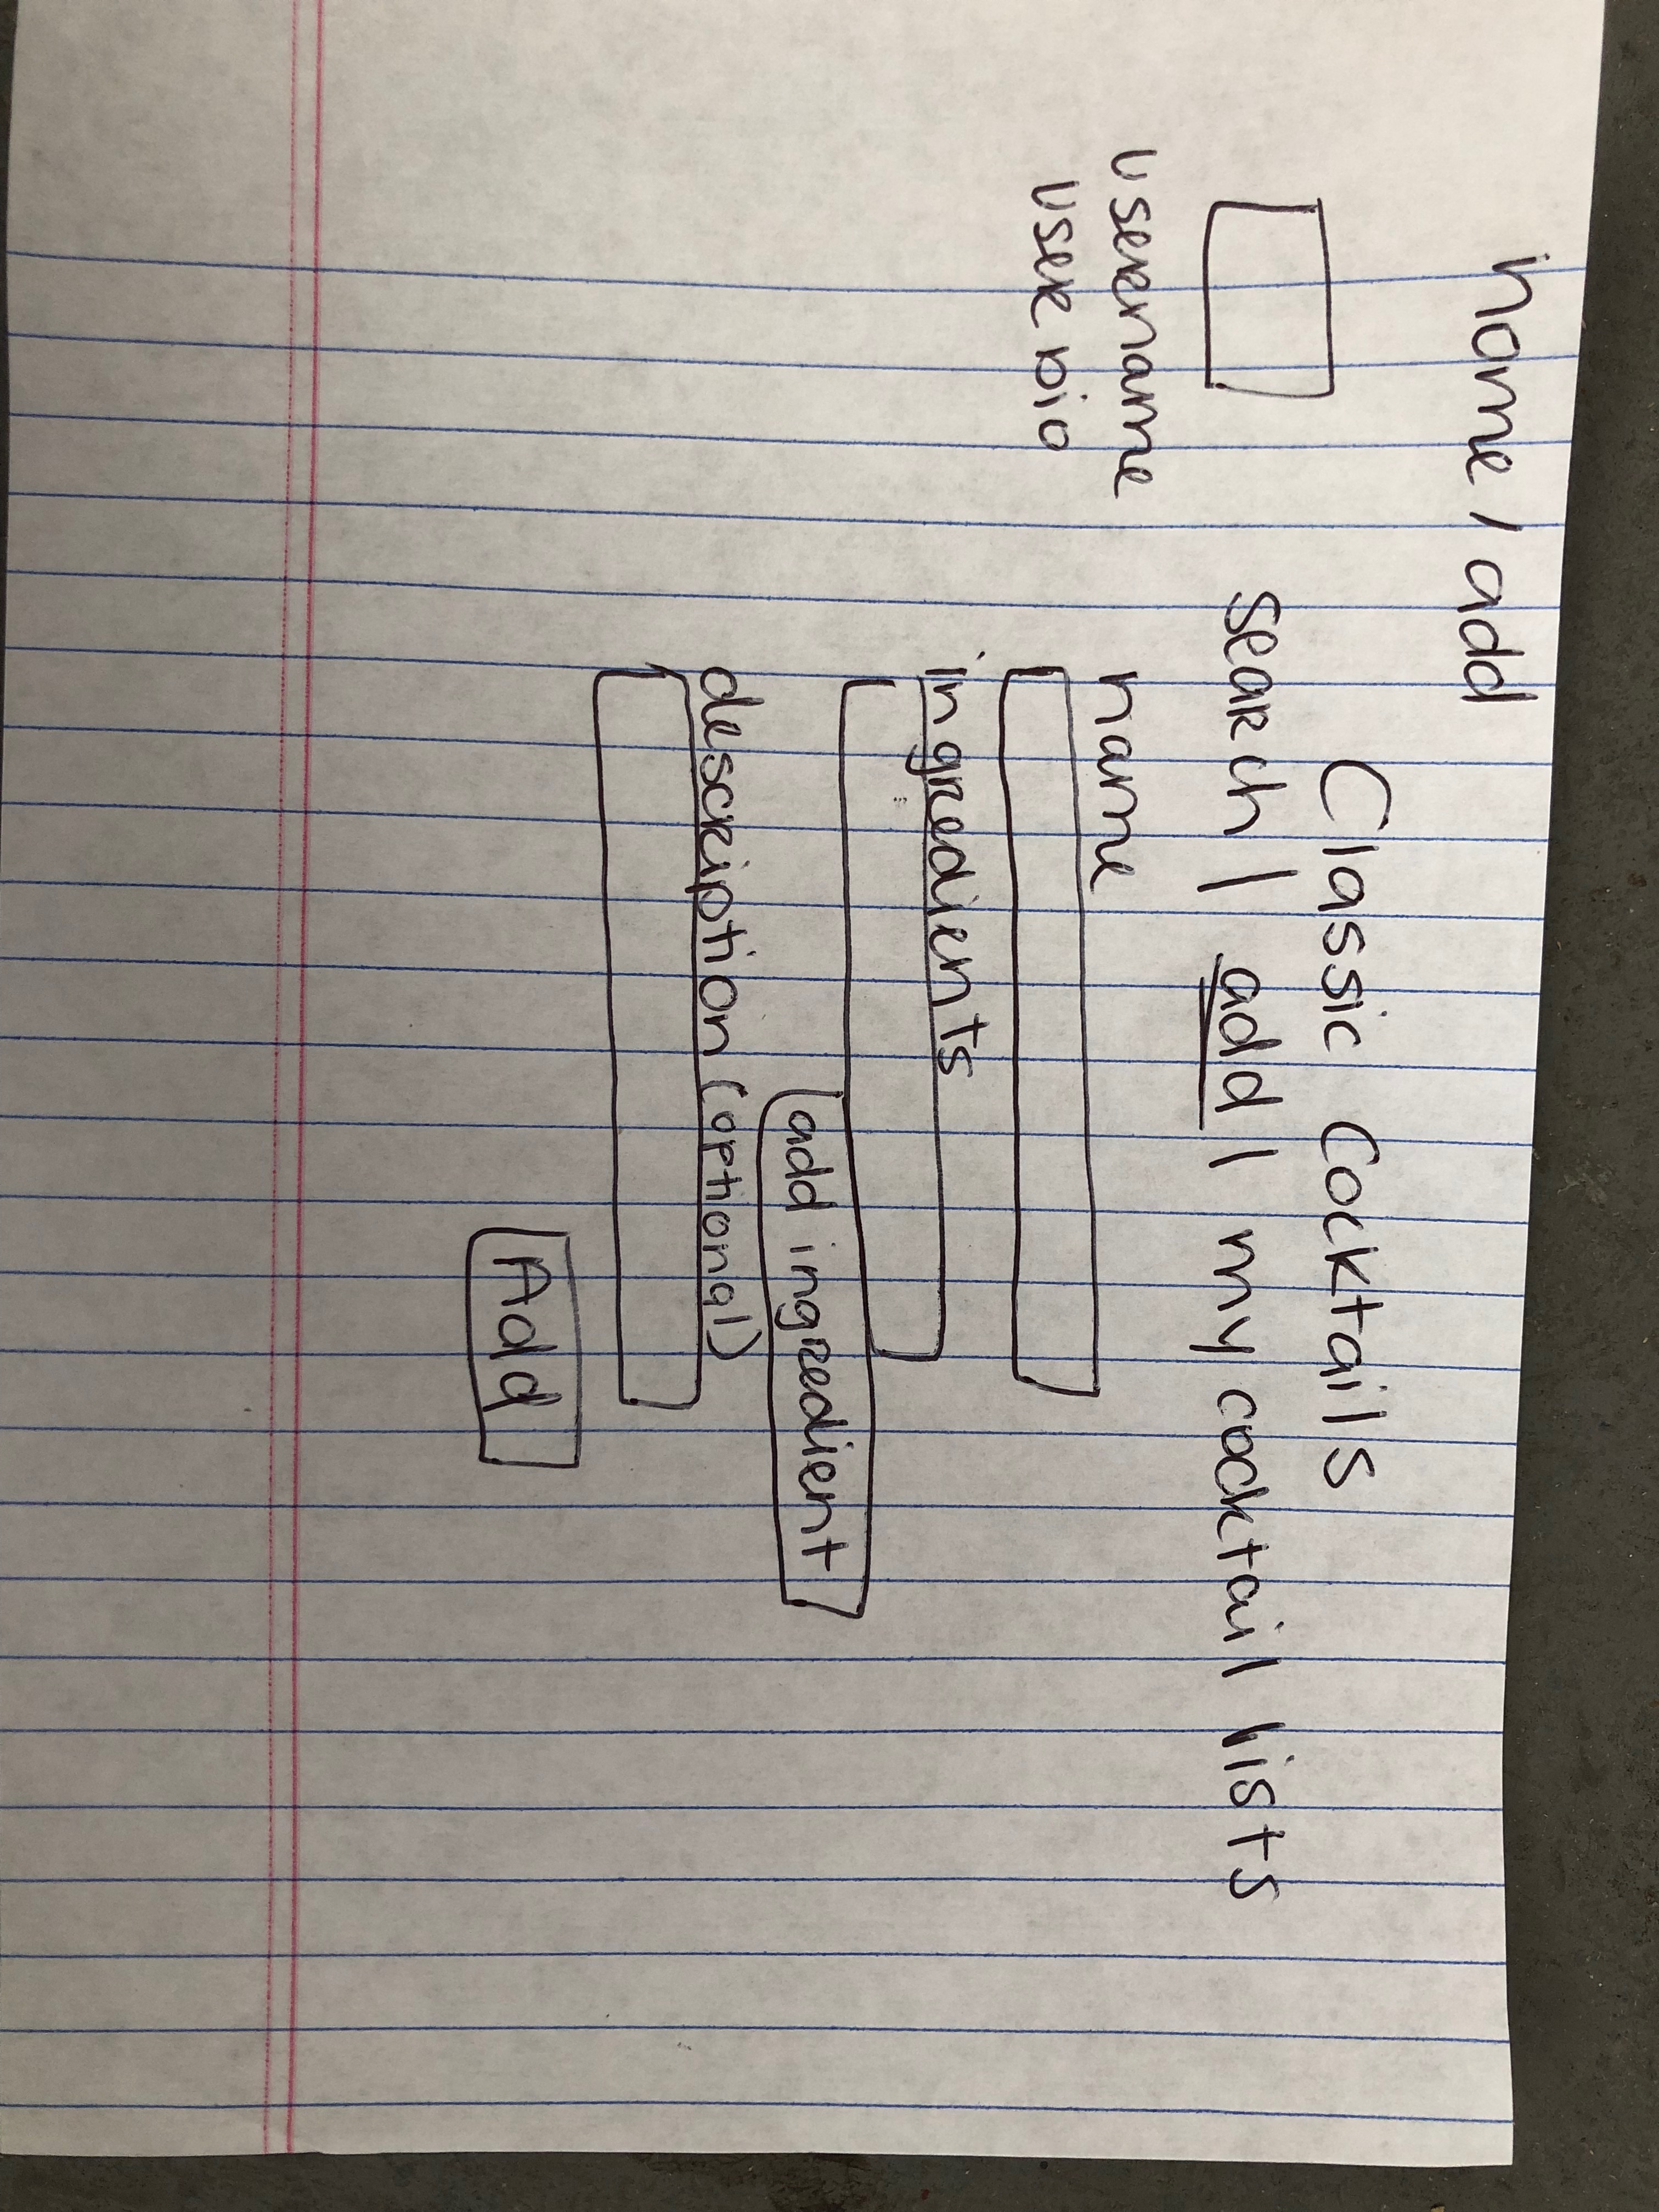 home / add
Classic Cocktails
search | add | my cocktail lists
username
user bio
name
ingredients
add ingredient
description (optional)
Add